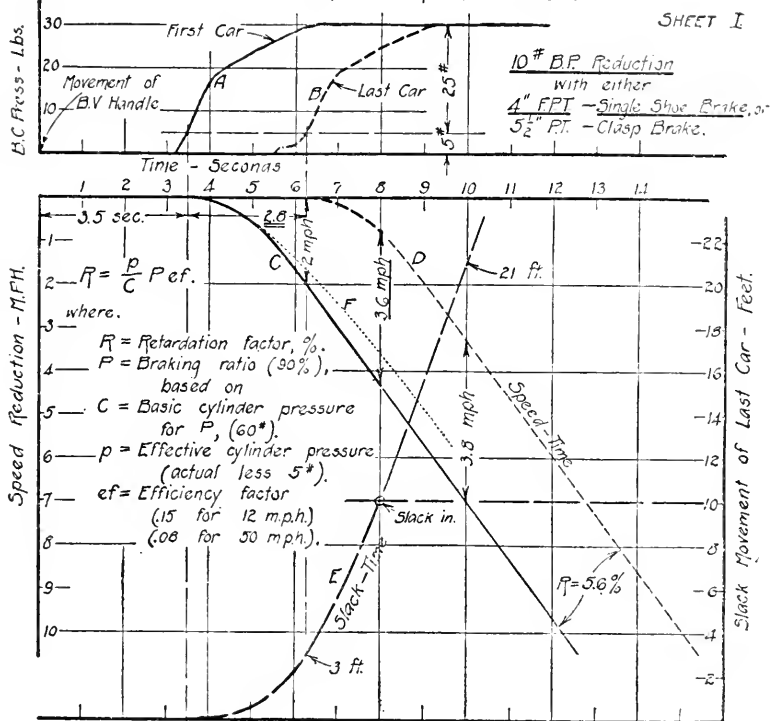 SHEET I
B.C Press - Lbs.
30
20
10
First Car
A
Movement of
B.V Handle
B
Last Car
25#
5#
10# B.P. Reduction
with either
4" F.P.T. - Single Shoe Brake, or
5½" P.T. - Clasp Brake.
Time - Seconds
1 2 3 4 5 6 7 8 9 10 11 12 13 1.1
3.5 sec.
2.8
2 mph
3.6 mph
3.8 mph
Speed Reduction - M.P.H.
1
2
3
4
5
6
7
8
9
10
R = p/C P ef.
where.
R = Retardation factor, %.
P = Braking ratio (90%),
based on
C = Basic cylinder pressure
for P, (60#).
p = Effective cylinder pressure
(actual less 5#).
ef = Efficiency factor
(.15 for 12 m.p.h.)
(.08 for 50 m.p.h.).
C
F
D
21 ft.
Speed-Time
Slack in.
E
Slack-Time
3 ft.
R = 5.6%
Slack Movement of Last Car - Feet.
22
20
18
16
14
12
10
8
6
4
2